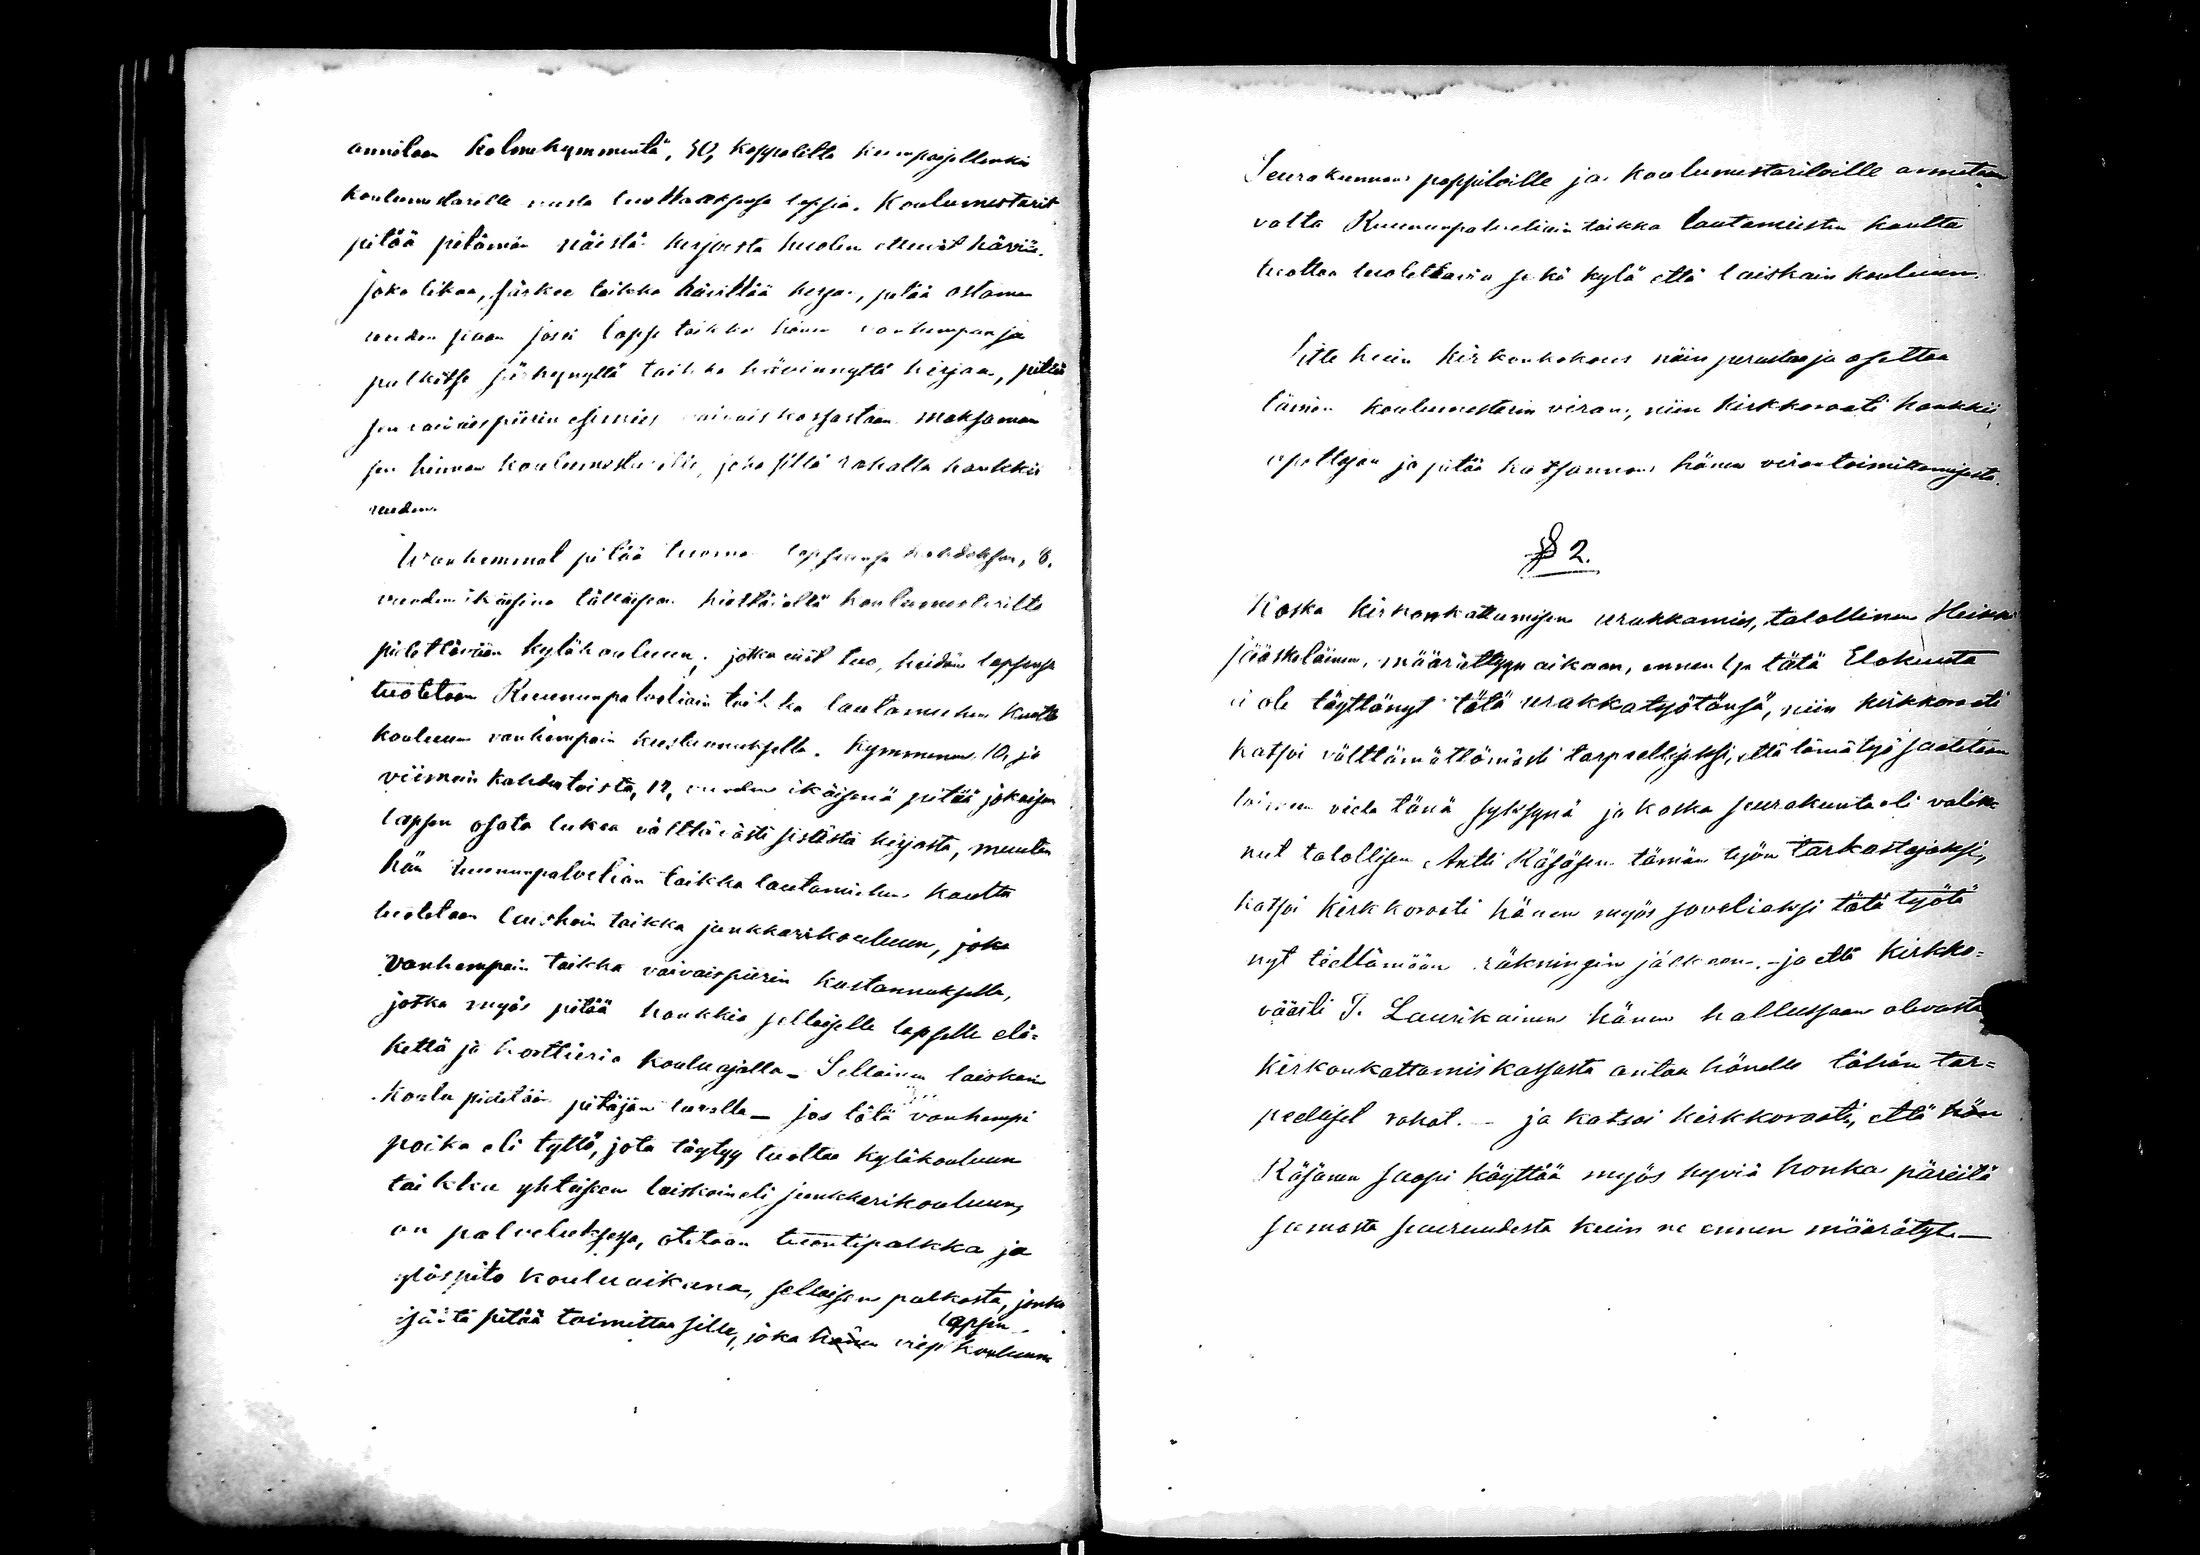 annetaan kolmekymmentä, 30, kappaletta kumpaisellenkin
koulumestarille uusia lapsia. Koulumestarit
pitää pitämän näistä kirjoista huolen etteivät häviä.
Joka likaa, särkee taikka hävittää kirjan, pitää ostaman
uuden siaan jossi lapsi taikka hänen vanhempansa
palkitse särkynyttä taikka hävinnyttä kirjaa, pitää
sen vaivaispiirin esimies vaivaiskassastaan maksaman
sen hinnan koulumestarille, joka sillä rahalla hankkii
uuden.
Wanhemmat pitää tuoman lapsensa kahdeksan, 8,
vuoden ikäisinä tällaiseen koulumestarilta
pidettävään kyläkouluun; jotka eivät tuo, heidän lapsensa
tuotetaan Ruununpalvelian taikka lautamiehen kautta
kouluun vanhempain kustannuksella. Kymmenen, 10, ja
viimein kahdentoista, 12, vuoden ikäisenä pitää jokaisen
lapsen osata lukea välttävästi sisästä kirjasta, muuten
hän ruununpalvelian taikka lautamiehen kautta
tuotetaan laiskain taikka junkkarikouluun, joko
vanhempain taikka vaivaispiirin kustannuksella,
jotka myös pitää hankkia sellaiselle lapselle elä-
kettä ja kortteeria kouluajalla – Sellainen laiskain
koulu pidetään pitäjän luvalla – jos tätä vanhempi
poika eli tyttö, jota täytyy tuottaa kyläkouluun
taikka yhteiseen laiskain eli junkkarikouluun,
on palveluksessa, otetaan tuontipalkka ja
ylöspito kouluaikana, sellaisen palkasta, jonka
isäntä pitää toimittaa sille, joka hänen lapsen viepi kouluun
Seurakunnan pappiloille ja koulumestariloille annetaan
valta Ruununpalvelioin taikka lautamiesten kautta
tuottaa tuotettavia sekä kylä että laiskain kouluun.
Sitte kuin kirkonkokous näin perustaa ja asettaa
tämän koulumestarin viran, niin kirkkoraati hankkii
opettajan ja pitää katsannon hänen virantoimittamisesta.
§ 2.
Koska kirkonkattamisen urakkamies, talollinen Heikki
Jääskeläinen, määrättyyn aikaan, ennen 1 p tätä Elokuuta
ei ole täyttänyt tätä urakkatyötänsä, niin kirkkoraati
katsoi välttämättömästi tarpeelliseksi, että tämä työ saatetaan
toimeen vielä tänä syksynä ja koska seurakunta oli valin-
nut talollisen Antti Räsäsen tämän työn tarkastajaksi,
katsoi kirkkoraati hänen myös soveliaksi tätä työtä
nyt täyttämään räkningin jälkeen. – ja että kirkko-
väärti I. Laurikainen hänen hallussaan olevasta
kirkonkattamiskassasta antaa hänelle tähän tar-
peelliset rahat. – ja katsoi kirkkoraati, että hän
Räsänen saapi käyttää myös hyviä honka päreitä
samasta suuruudesta kuin ne ennen määrätyt. –